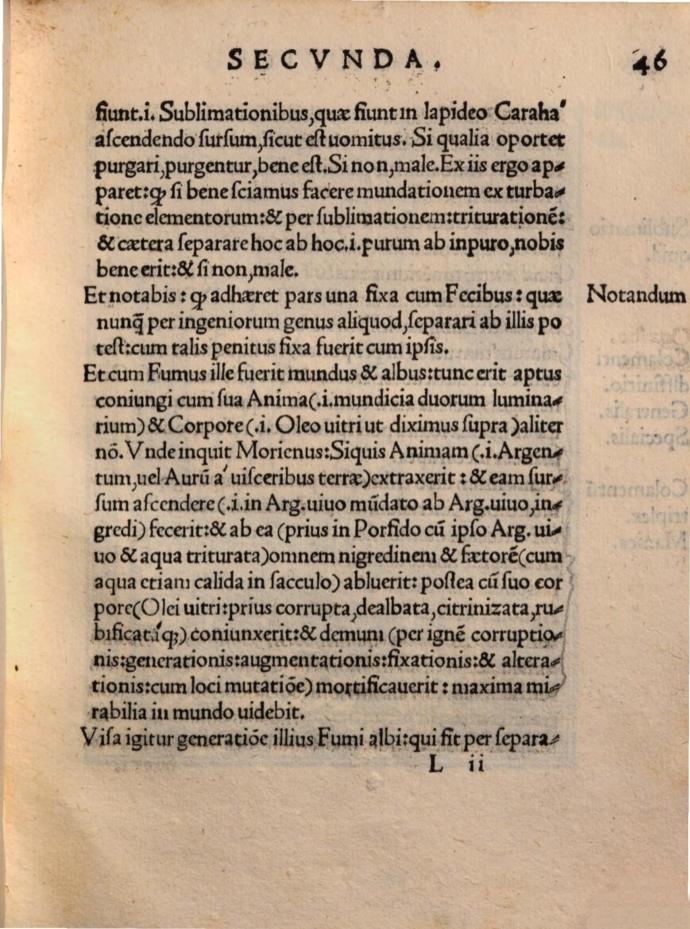 SECVNDA.
46
fiunt.i. Sublimationibus,quæ fiunt in lapideo Caraha'
aſcendendo ſurſum,ſicut eſt uomitus. Si qualia oportet
purgari,purgentur,bene eſt.Si non,male.Ex iis ergo ap⸗
paret:ꝙ ſi bene ſciamus facere mundationem ex turba⸗
tione elementorum:& per ſublimationem:triturationē:
& cætera ſeparare hoc ab hoc.i.purum ab inpuro,nobis
bene erit:& ſi non,male.
Et notabis : ꝙ adhæret pars una fixa cum Fecibus : quæ
Notandum
nunq̃ per ingeniorum genus aliquod,ſeparari ab illis po
teſt:cum talis penitus fixa fuerit cum ipſis.
Et cum Fumus ille fuerit mundus & albus:tunc erit aptus
coniungi cum ſua Anima(.i.mundicia duorum lumina⸗
rium) & Corpore (.i. Oleo uitri ut diximus ſupra )aliter
nō. Vnde inquit Morienus:Siquis Animam (.i.Argen⸗
tum,uel Aurū a' uiſceribus terræ)extraxerit : & eam ſur⸗
ſum aſcendere (.i.in Arg.uiuo mūdato ab Arg.uiuo,in⸗
gredi) fecerit:& ab ea (prius in Porfido cū ipſo Arg. ui⸗
uo & aqua triturata)omnem nigredinem & fœtorē(cum
aqua etiam calida in ſacculo) abluerit: poſtea cū ſuo cor
pore(Olei uitri:prius corrupta,dealbata,citrinizata,ru⸗
bificata'q;) coniunxerit:& demum (per ignē corruptio⸗
nis:generationis:augmentationis:fixationis:& altera⸗
tionis:cum loci mutatiōe) mortificauerit : maxima mi⸗
rabilia in mundo uidebit.
Viſa igitur generatiōe illius Fumi albi:qui fit per ſepara⸗
L ii